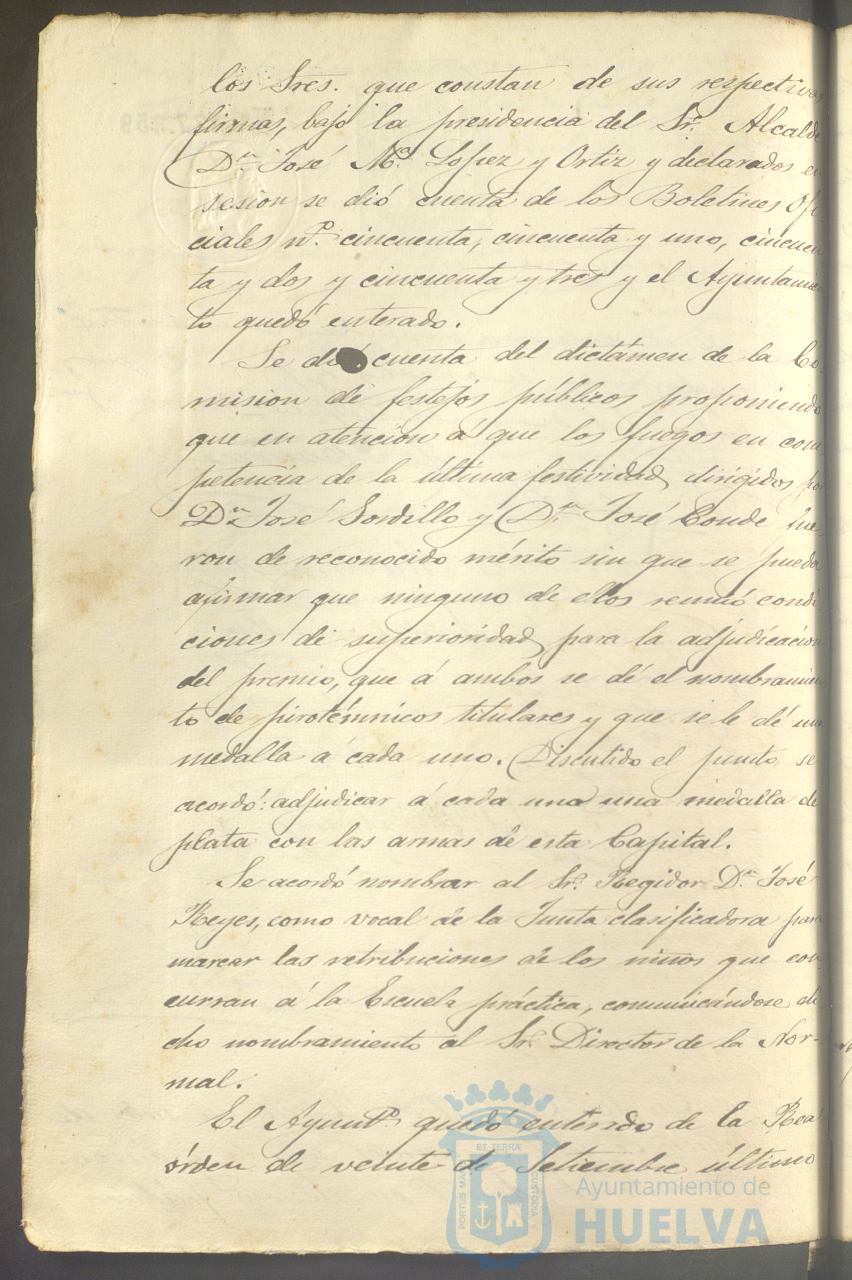 los Sres. que constan de sus respectivas
firmas, bajo la presidencia del Sr. Alcalde
Dn. José Mª. Lopez y Ortiz y declarados en
sesion se dió cuenta de los Boletines Ofi
ciales nº. cincuenta, cincuenta y uno, cincuen
ta y dos y cincuenta y tres y el Ayuntamien
to quedó enterado.
Se dió cuenta del dictámen de la Co
mision de festejos públicos proponiendo
que en atencion á que los fuegos en com
petencia de la última festividad, dirigidos por
Dn. José Sordillo y Dn. José Conde fue-
ron de reconocido mérito sin que se pueda
afirmar que ninguno de ellos reunió condi
ciones de superioridad, para la adjudicacion
del premio, que á ambos se dé el nombramien
to de pirotémnicos titulares y que se le dé una
medalla á cada uno. Discutido el punto, se
acordó: adjudicar á cada uno una medalla de
plata con las armas de esta Capital.
Se acordó nombrar al Sr. Regidor Dn. José
Reyes, como vocal de la Junta clasificadora para
marcar las retribuciones de los niños que con
curran á la Escuela práctica, comunicándose di
cho nombramiento al Sr. Director de la Nor-
mal.
El Ayuntº. quedó enterado de la Rea
órden de veinte de Setiembre último
PORTUS MA
ET TERRÆ
CUSTODIA
Ayuntamiento de
HUELVA